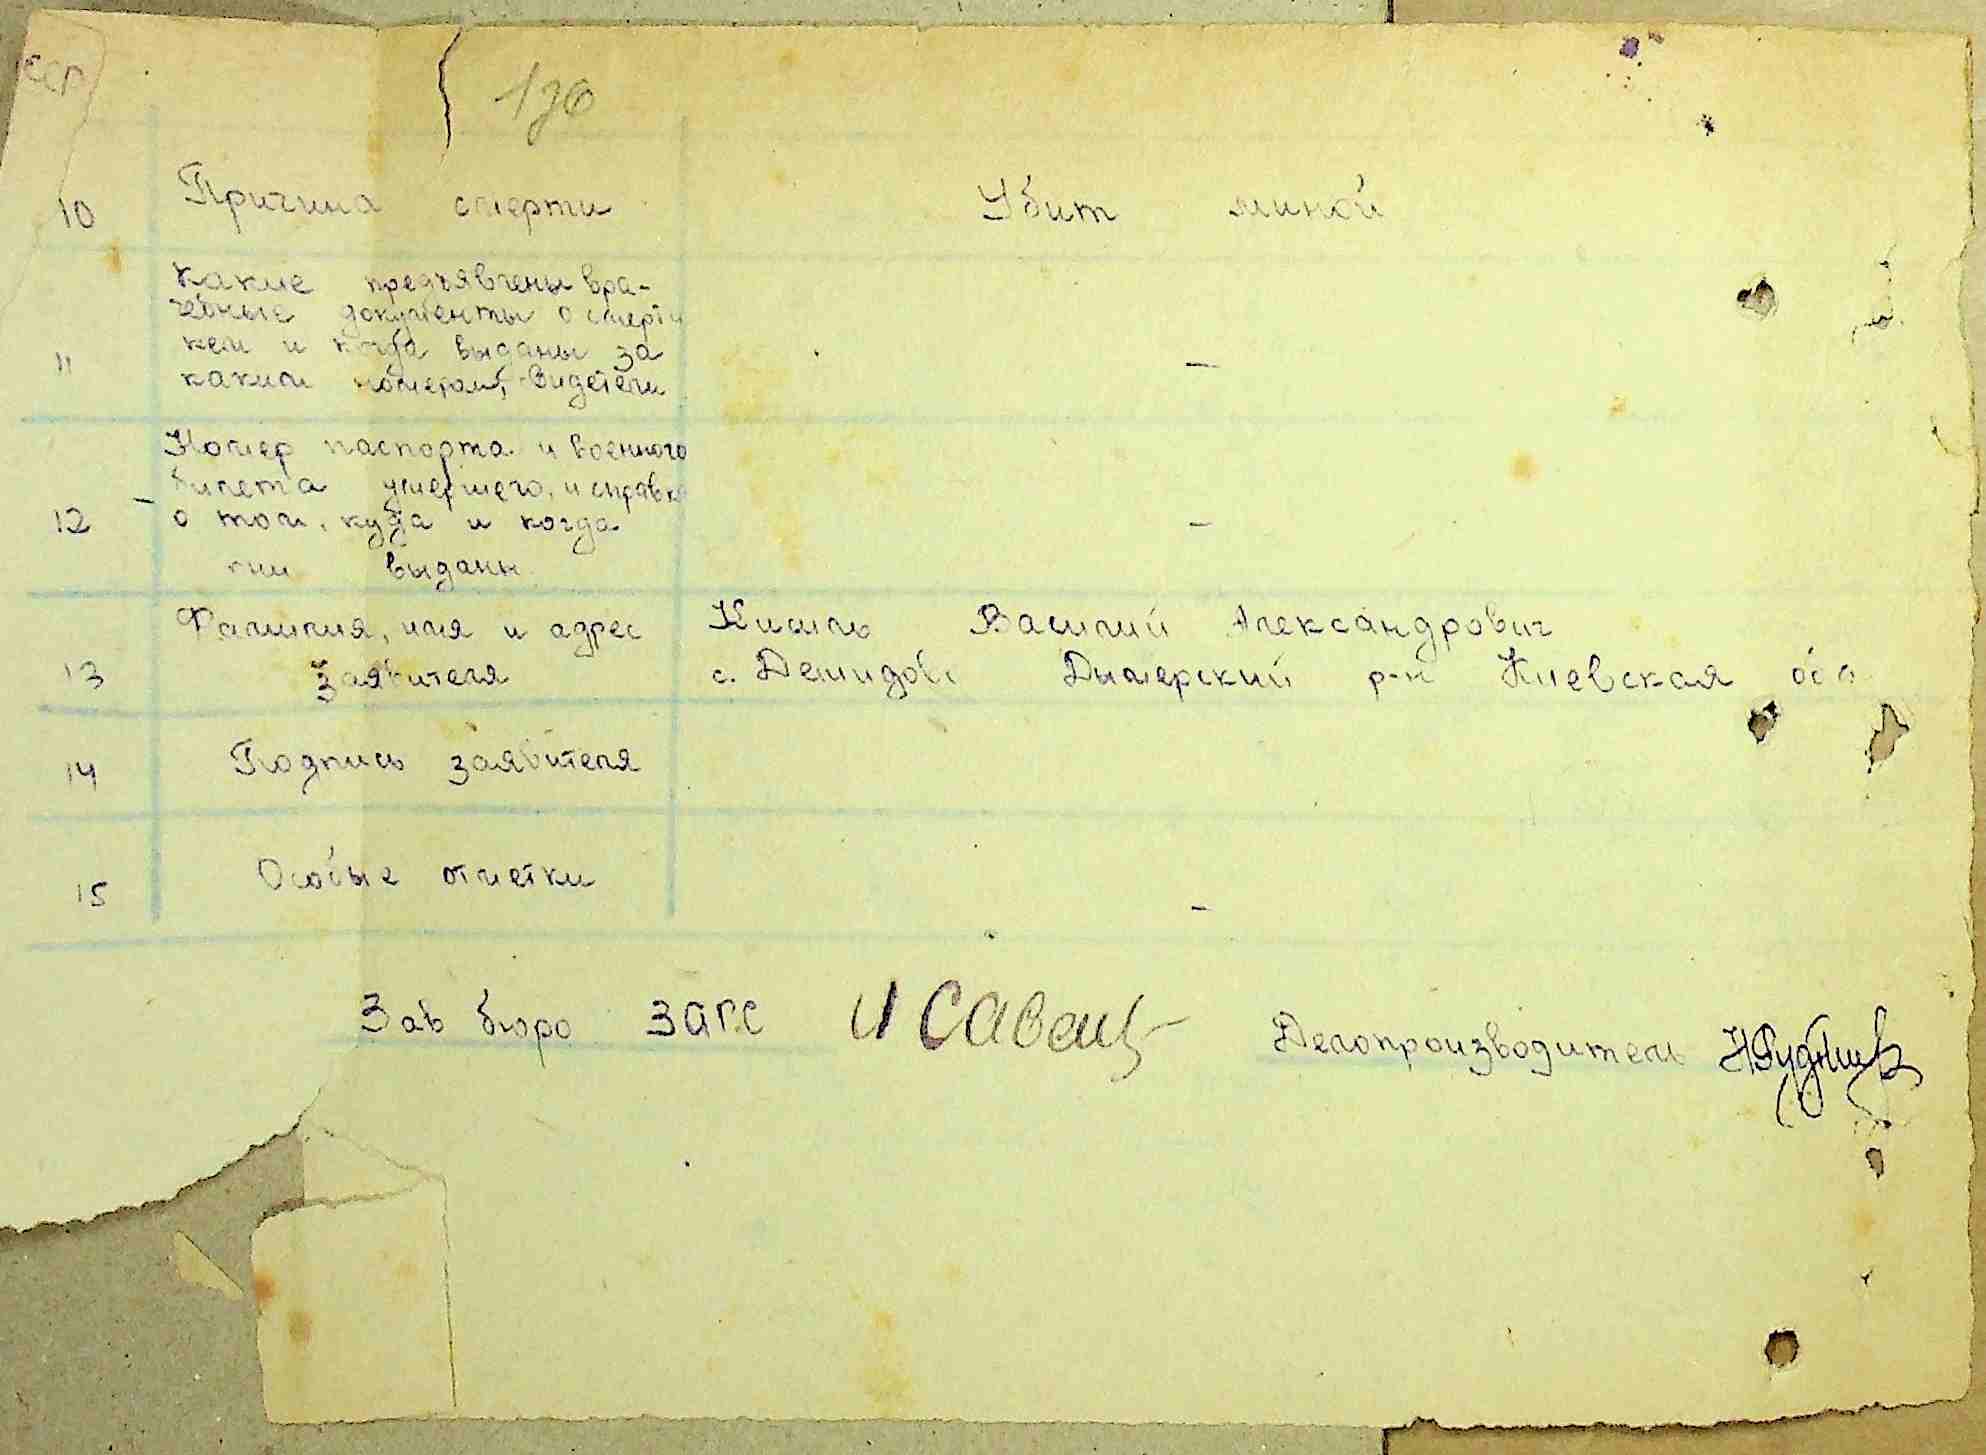 ССР
10 Причина смерти Убит миной
Какие предъявлены вра-
чебные документы о смерти
кем и когда выданы за
11 каким номером, видетели —
Номер паспорта и военного
билета умершего, и справка
12 о том, куда и когда —
они выданы
Фамилия, имя и адрес Василий Александрович
13 заявителя с. Демидово Дымерский р-н Киевская обл
14 Подпись заявителя
15 Особые отметки —
Зав бюро ЗАГС И Савец Делопроизводитель